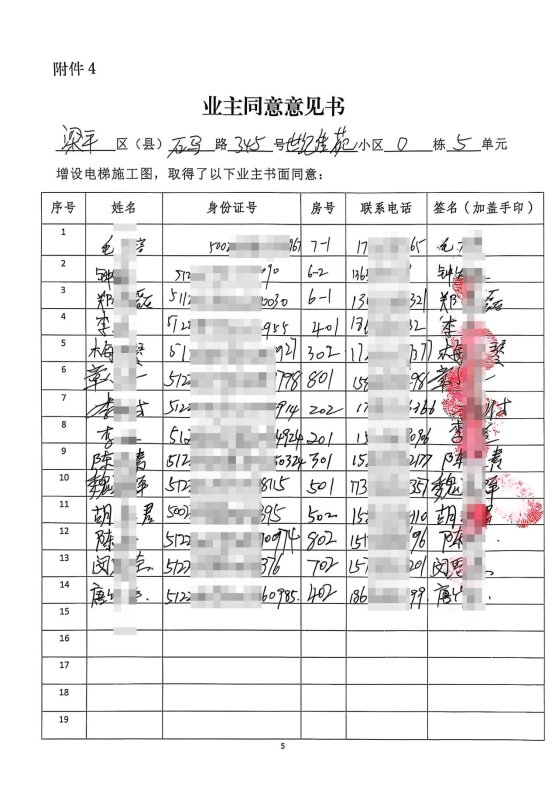 附件 4
业主同意意见书
梁平 区（县） 石马 路 345 号 世纪佳苑 小区 0 栋 5 单元
增设电梯施工图，取得了以下业主书面同意：
序号 姓名 身份证号 房号 联系电话 签名（加盖手印）
1 毛 5002 967 7-1 17 65 毛
2 钟 512 090 6-2 136 钟
3 郑 磊 511 0030 6-1 136 321 郑 磊
4 李 5122 955 401 136 32 李
5 梅 琴 51 927 302 17 377 梅 琴
6 章 5122 798 801 158 98 章
7 李 512 914 202 17 366 李
8 李 512 4924 201 15 096 李
9 陈 贵 5122 50324 301 152 2177 陈 贵
10 魏 军 5122 8115 501 173 357 魏 军
11 胡 君 5002 395 502 15 110 胡 君
12 陈 5122 70974 802 15 96 陈
13 闵 5122 376 702 157 201 闵
14 唐 5122 60985 402 186 99 唐
15
16
17
18
19
5